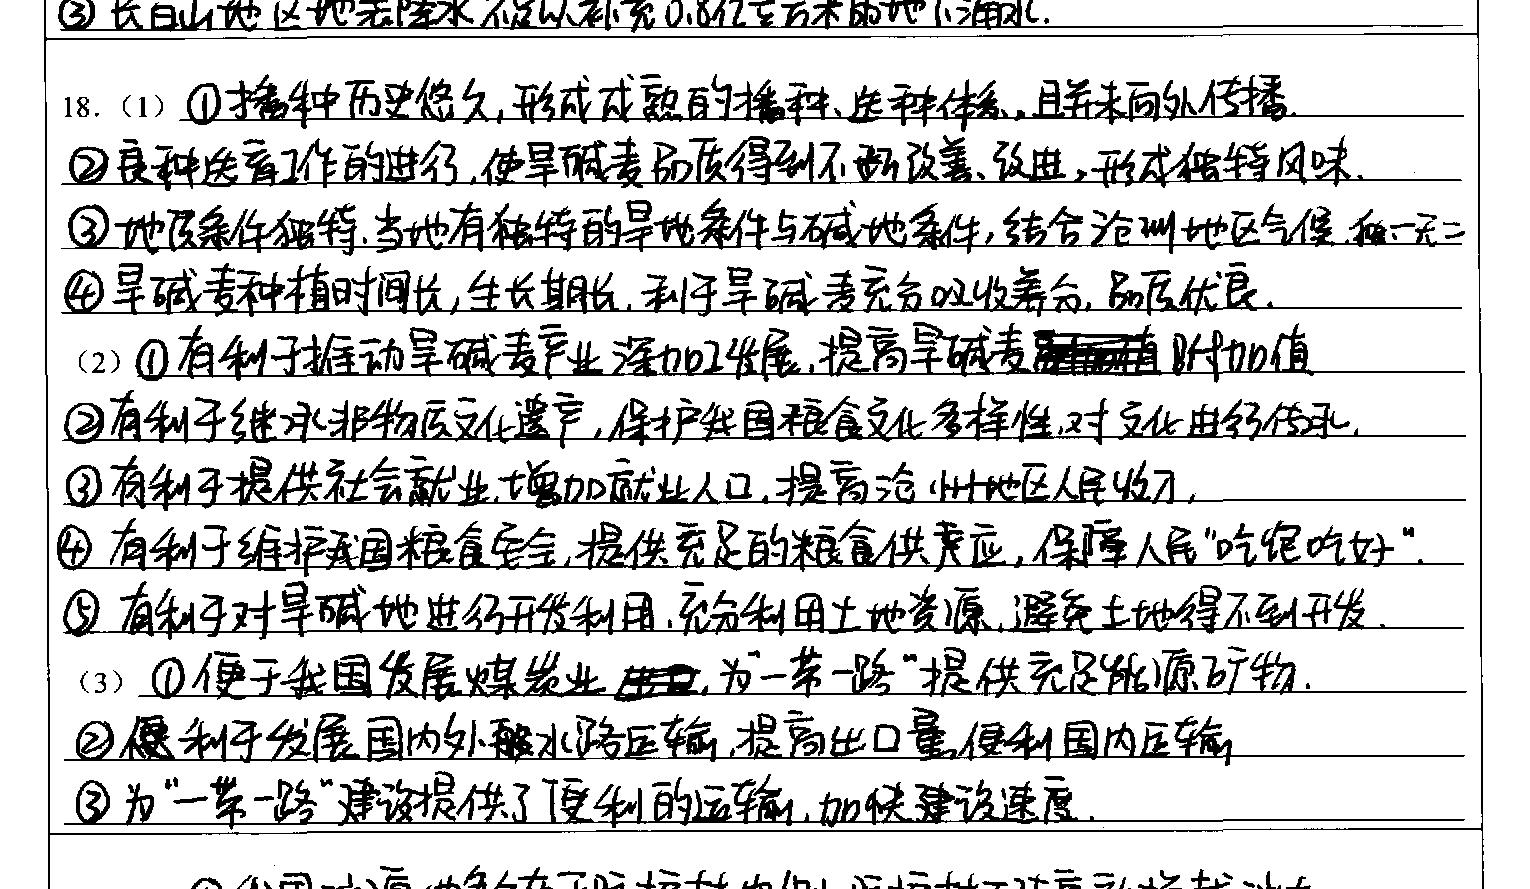 ③长白山地区地表降水不足以补充0.8亿立方米的地下涌水.
18.（1）①播种历史悠久,形成成熟的播种、选种体系,且并未向外传播.
②良种选育工作的进行,使旱碱麦品质得到不断改善、改进,形成独特风味.
③地质条件独特.当地有独特的旱地条件与碱地条件,结合沧州地区气候.独一无二
④旱碱麦种植时间长,生长期长.利于旱碱麦充分吸收养分,品质优良.
（2）①有利于推动旱碱麦产业深加工发展,提高旱碱麦附加值
②有利于继承非物质文化遗产,保护我国粮食文化多样性,对文化进行传承.
③有利于提供社会就业,增加就业人口,提高沧州地区人民收入,
④有利于维护我国粮食安全,提供充足的粮食供应,保障人民"吃饱吃好".
⑤有利于对旱碱地进行开发利用,充分利用土地资源,避免土地得不到开发.
（3）①便于我国发展煤炭业,为"一带一路"提供充足能源矿物.
②便利于发展国内外水路运输,提高出口量,便利国内运输
③为"一带一路"建设提供了便利的运输,加快建设速度.